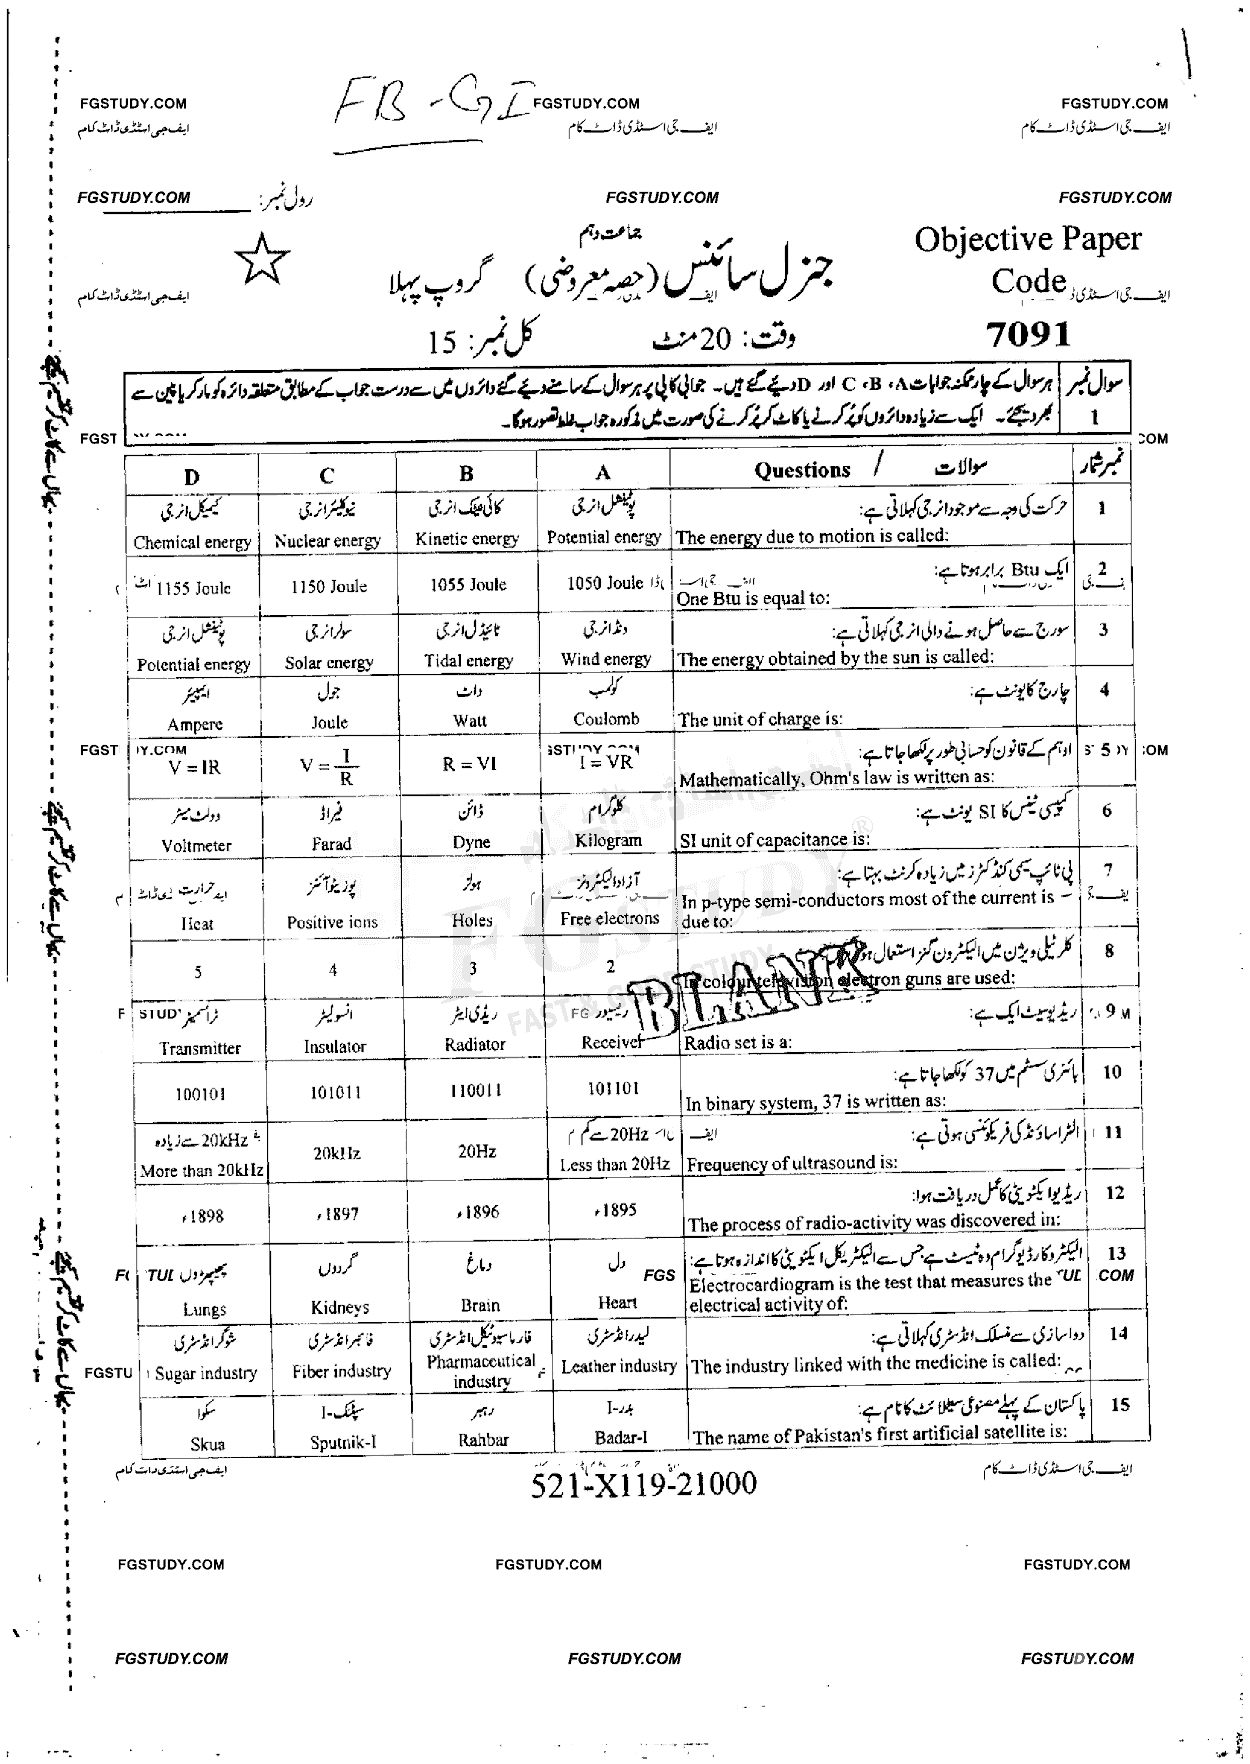 FB-GI
FGSTUDY.COM FGSTUDY.COM FGSTUDY.COM
ایف جی اسٹڈی ڈاٹ کام ایف جی اسٹڈی ڈاٹ کام ایف جی اسٹڈی ڈاٹ کام
FGSTUDY.COM رول نمبر: FGSTUDY.COM FGSTUDY.COM
جماعت دہم
Objective Paper
جنرل سائنس (حصہ معروضی) گروپ پہلا
Code
ایف جی اسٹڈی ڈاٹ کام
7091
وقت: 20 منٹ کل نمبر: 15
سوال نمبر 1
ہر سوال کے چار ممکنہ جوابات A، B، C اور D دیئے گئے ہیں۔ جوابی کاپی پر ہر سوال کے سامنے دیئے گئے دائروں میں سے درست جواب کے مطابق متعلقہ دائرہ کو مارکر یا پین سے
بھر دیجئے۔ ایک سے زیادہ دائروں کو پُر کرنے یا کاٹ کر پُر کرنے کی صورت میں مذکورہ جواب غلط تصور ہوگا۔
D C B A Questions / سوالات نمبر شمار
کیمیکل انرجی نیوکلیئر انرجی کائی نیٹک انرجی پوٹینشل انرجی حرکت کی وجہ سے موجود انرجی کہلاتی ہے: 1
Chemical energy Nuclear energy Kinetic energy Potential energy The energy due to motion is called:
ایک Btu برابر ہوتا ہے: 2
1155 Joule 1150 Joule 1055 Joule 1050 Joule One Btu is equal to:
پوٹینشل انرجی سولر انرجی ٹائیڈل انرجی ونڈ انرجی سورج سے حاصل ہونے والی انرجی کہلاتی ہے: 3
Potential energy Solar energy Tidal energy Wind energy The energy obtained by the sun is called:
ایمپیئر جول واٹ کولمب چارج کا یونٹ ہے: 4
Ampere Joule Watt Coulomb The unit of charge is:
اوہم کے قانون کو حسابی طور پر لکھا جاتا ہے: 5
V = IR V = I/R R = VI I = VR Mathematically, Ohm's law is written as:
وولٹ میٹر فیراڈ ڈائن کلوگرام کپیسی ٹینس کا SI یونٹ ہے: 6
Voltmeter Farad Dyne Kilogram SI unit of capacitance is:
حرارت پوزیٹو آئنز ہولز آزاد الیکٹرونز پی ٹائپ سیمی کنڈکٹرز میں زیادہ کرنٹ بہتا ہے: 7
Heat Positive ions Holes Free electrons In p-type semi-conductors most of the current is due to:
کلر ٹیلی ویژن میں الیکٹرون گنز استعمال 8
5 4 3 2 In colour television electron guns are used:
BLANK
ٹرانسمیٹر انسولیٹر ریڈی ایٹر ریسیور ریڈیو سیٹ ایک ہے: 9
Transmitter Insulator Radiator Receiver Radio set is a:
بائنری سسٹم میں 37 کو لکھا جاتا ہے: 10
100101 101011 110011 101101 In binary system, 37 is written as:
20kHz سے زیادہ 20Hz سے کم الٹراساؤنڈ کی فریکوئنسی ہوتی ہے: 11
More than 20kHz 20kHz 20Hz Less than 20Hz Frequency of ultrasound is:
ریڈیو ایکٹویٹی کا عمل دریافت ہوا: 12
1898ء 1897ء 1896ء 1895ء The process of radio-activity was discovered in:
پھیپھڑوں گردوں دماغ دل الیکٹرو کارڈیوگرام وہ ٹیسٹ ہے جس سے الیکٹریکل ایکٹویٹی کا اندازہ ہوتا ہے: 13
Lungs Kidneys Brain Heart Electrocardiogram is the test that measures the electrical activity of:
شوگر انڈسٹری فائبر انڈسٹری فارماسیوٹیکل انڈسٹری لیدر انڈسٹری دوا سازی سے منسلک انڈسٹری کہلاتی ہے: 14
Sugar industry Fiber industry Pharmaceutical industry Leather industry The industry linked with the medicine is called:
سکوا سپٹنک-I رہبر بدر-I پاکستان کے پہلے مصنوعی سیٹلائٹ کا نام ہے: 15
Skua Sputnik-I Rahbar Badar-I The name of Pakistan's first artificial satellite is:
ایف جی اسٹڈی ڈاٹ کام ایف جی اسٹڈی ڈاٹ کام
521-X119-21000
FGSTUDY.COM FGSTUDY.COM FGSTUDY.COM
FGSTUDY.COM FGSTUDY.COM FGSTUDY.COM